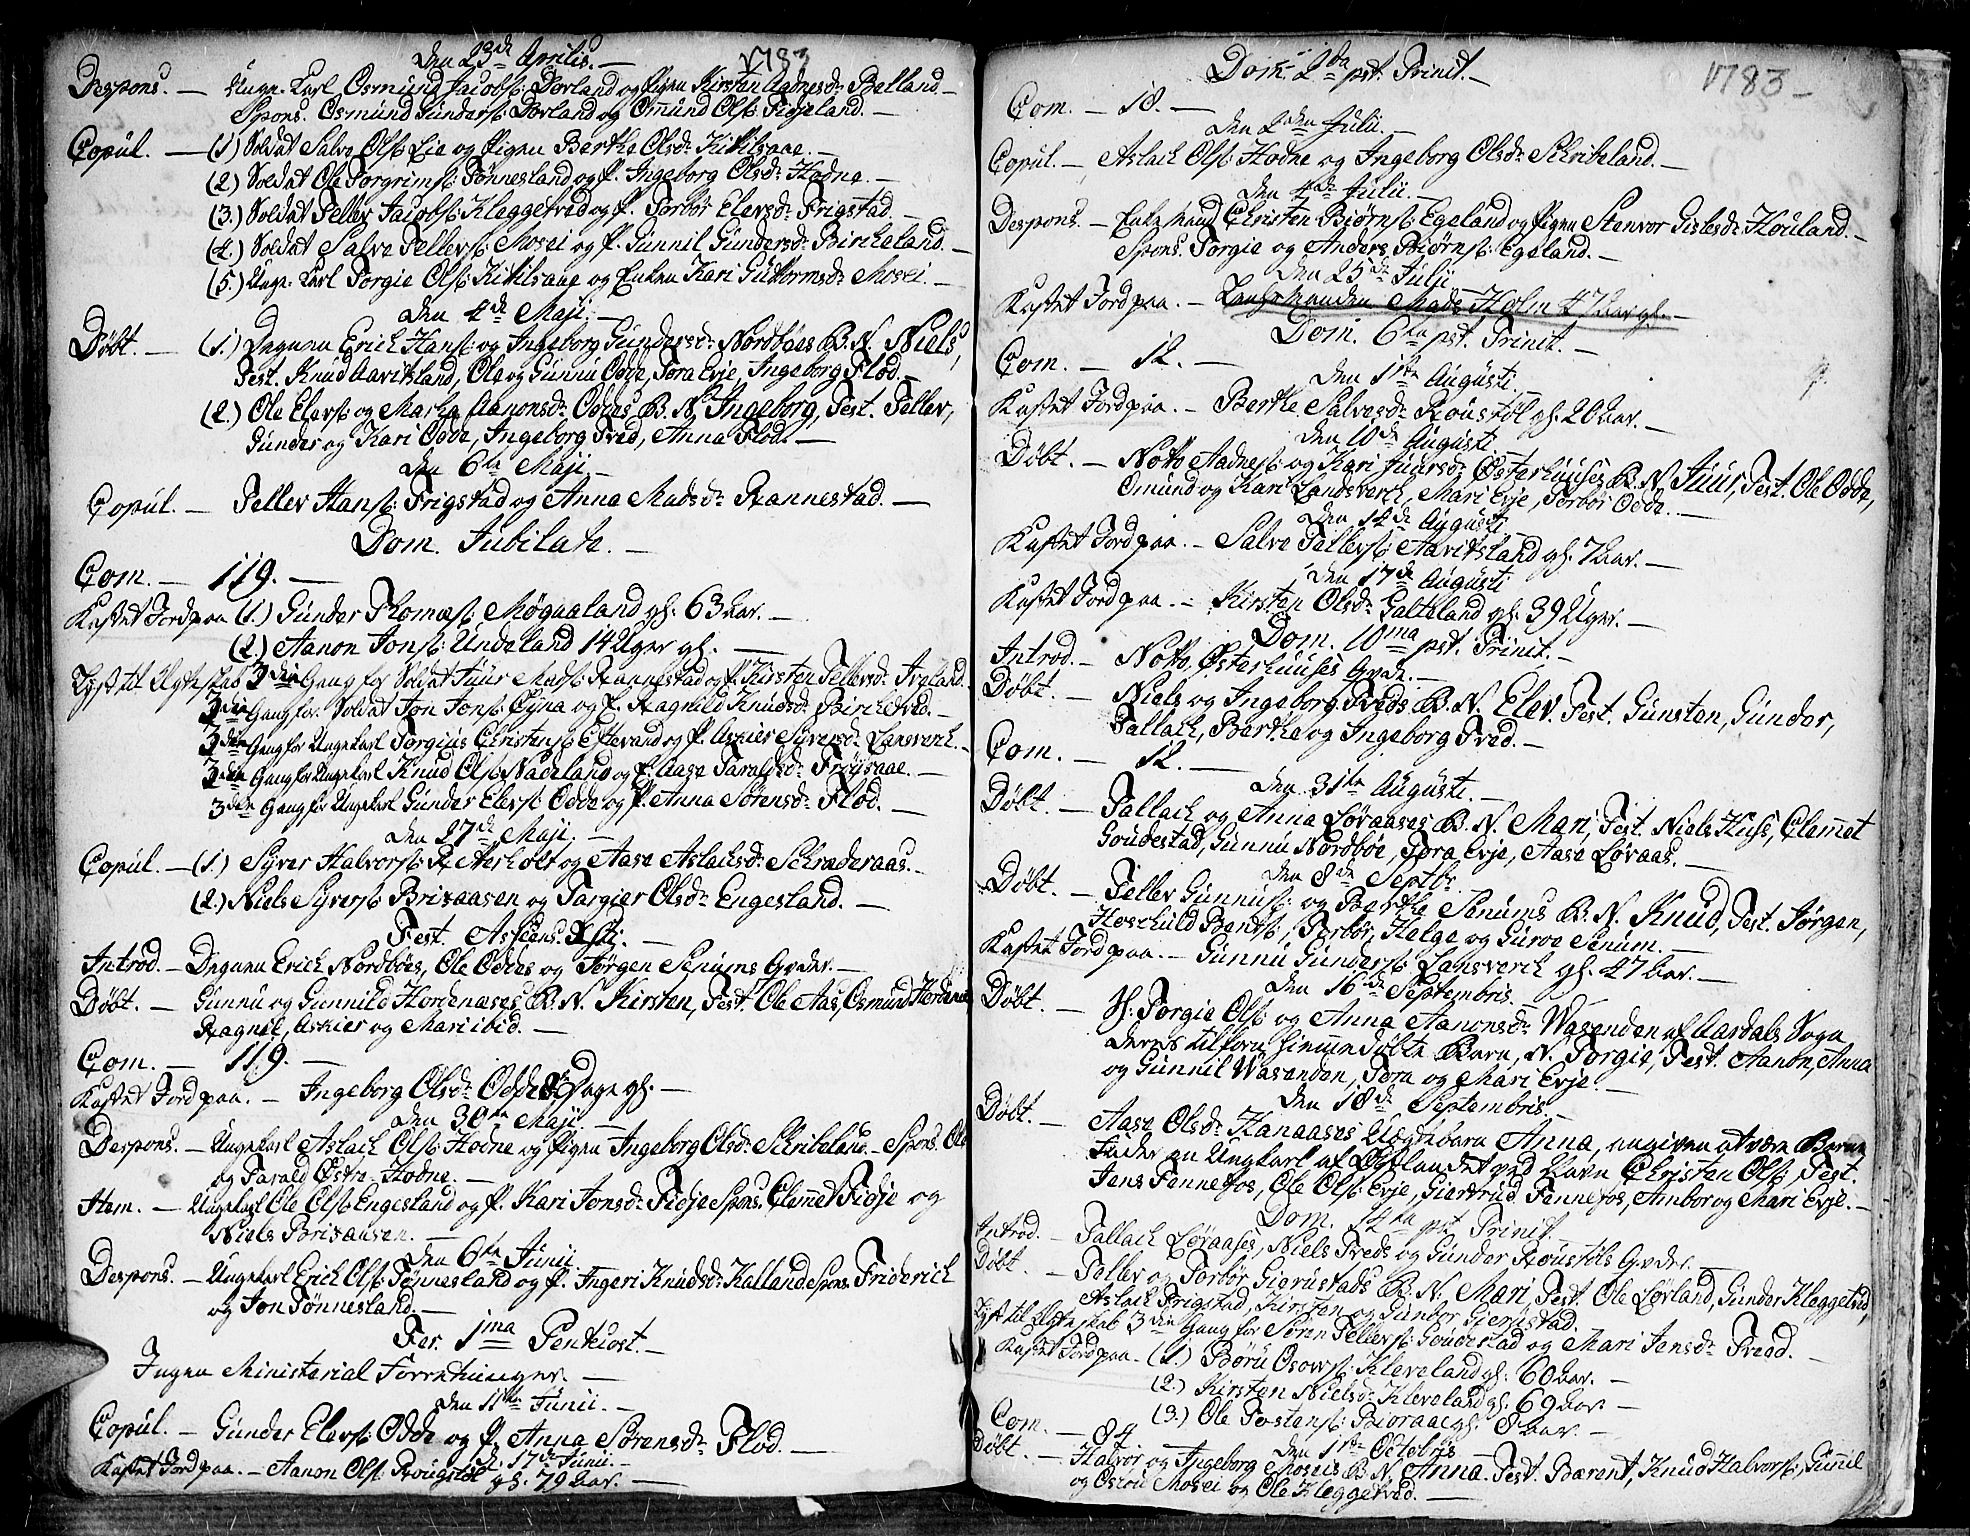 Den 23de Aprilis. — 1783
Despons. — Unge-Karl Osmund Jacobs: Dovland og Pigen Kirsten Aadnesdr: Birkeland. —
Spons. Osmund Gunders: Dovland og Omund Ols: Fidjeland. —
Copul. — (1.) Soldat Salve Ols: Lie og Pigen Berthe Olsdr: Kittilsaae. —
(2.) Soldat Ole Torgrims: Tønnesland og P. Ingeborg Olsdr: Hodne. —
(3.) Soldat Tellev Jacobs: Kleggetved og P. Torbor Elevsdr: Frigstad. —
(4.) Soldat Salve Tellevs: Mosei og P. Gunnil Gundersdr: Bircheland. —
(5.) Unge-Karl Torgie Ols: Kittilsaae og Enken Kari Guttormsdr: Mosei. —
Den 4de Maji. —
Døbt. — (1.) Degnen Erich Hans: og Ingeborg Gundersdr: Nordbøes B. N. Niels,
Test. Knud Aavitsland, Ole og Gunnu Odde, Tora Evje, Ingeborg Flod. —
(2.) Ole Elevs: og Marthe Aanonsdr: Oddes B. N. Ingeborg, Test. Tellev,
Gunder og Kari Odde, Ingeborg Tved, Anna Flod. —
Den 6te Maji. —
Copul. — Tellev Hans: Frigstad og Anna Madsdr: Rannestad. —
Dom. Jubilate. —
Com. — 119. —
Kastet Jord paa (1.) Gunder Thomæs: Møgaaland gl. 63 Aar. —
(2.) Aanon Jons: Undeland 14 Uger gl. —
Lyst til Ægteskab 3die Gang for Soldat Juur Mads: Rannestad og P. Kirsten Tellevsdr: Iveland.
3die Gang for Soldat Jon Jons: Øyna og P. Ragnild Knudsdr: Birketved. —
3die Gang for Ungekarl Torgius Christens: Eftevand og P. Askier Syversdr: Lansverk. —
3die Gang for Ungekarl Knud Ols: Nadeland og P. Aase Taraldsdr: Frøysaae. —
3die Gang for Ungekarl Gunder Elevs: Odde og P. Anna Sørensdr: Flod. —
Den 27de Maji. —
Copul. — (1.) Syver Halvors: Aerholt og Aase Aslachsdr: Schræderaas. —
(2.) Niels Syvers: Brixaasen og Targier Olsdr: Engesland. —
Fest. Ascens. Xsti. —
Introd. — Degnen Erich Nordbøes, Ole Oddes og Jørgen Senums Qvder. —
Døbt. — Gunnu og Gunnild Hordenæses B. N. Kirsten, Test. Ole Aas, Osmund Hordenæs
Ragnil, Askier og Mari ibid. —
Com. — 119. —
Kastet Jord paa. — Ingeborg Olsdr: Odde Dage gl. —
Den 30te Maji. —
Despons. — Ungekarl Aslach Ols: Hodne og Pigen Ingeborg Olsdr: Schribeland. — Spons. Ole
og Tarald Østre-Hodne. —
Item. — Ungekarl Ole Ols: Engesland og P. Kari Jonsdr: Fidje Spons. Clemet Fidje og
Niels Brixaasen. —
Den 6te Junii
Despons. — Ungekarl Erich Ols: Tønnesland og P. Ingeri Knudsdr: Kalland Spons. Friderich
og Jon Tønnesland. —
Fer. 1ma Pentecost. —
Ingen Ministerial Forretninger. —
Den 11te Junii. —
Copul. — Gunder Elevs: Odde og P. Anna Sørensdr: Flod. —
d. 17de Junii. —
Kastet Jord paa. — Aanon Ols: Røugstøl gl. 79 Aar. —
Dom: 2da pst. Trinit. — 1783 —
Com. — 18. —
Den 2den Julii. —
Copul. — Aslach Ols: Hodne og Ingeborg Olsdr: Schribeland. —
Den 4de Julii. —
Despons. — Enkemand Christen Biørns: Egeland og Pigen Stenvor Gislesdr: Houland. —
Spons. Torgie og Anders Biørns: Egeland. —
Den 25de Julii
Kastet Jord paa. — Lensmanden Mads Holm 47 Aar gl. —
Dom. 6ta pst. Trinit. —
Com. — 12. —
Den 1ste Augusti. —
Kastet Jord paa. — Berthe Salvesdr: Roustøl gl. 26 Aar. —
Den 10de Augusti
Døbt. — Notto Aadnes: og Kari Juursdr: Østerhuuses B. N. Juur, Test. Ole Odde,
Omund og Kari Landsverch, Mari Evje, Torbor Odde. —
Den 14de Augusti
Kastet Jord paa. — Salve Tellevs: Aavitsland gl. 7 Aar. —
Den 17de Augusti
Kastet Jord paa. — Kirsten Olsdr: Galteland gl. 39 Uger. —
Dom. 10ma pst. Trinit. —
Introd. — Notto Østerhuuses Qvde. —
Døbt. — Niels og Ingeborg Tveds B. N. Elev. Test. Gunsten, Gunder,
Tallach, Berthe og Ingeborg Tved. —
Com. — 12. —
Den 31te Augusti. —
Døbt. — Tallach og Anna Løvaases B. N. Mari, Test. Niels Huss, Clemet
Goudestad, Gunnu Nordbøe, Tora Evje, Aase Løvaas. —
Den 8de Septbr.
Døbt. — Tellev Gunnus: og Berthe Senums B. N. Knud, Test. Jørgen,
Hoschuld Bents:, Torbor, Helge og Gurve Senum. —
Kastet Jord paa. — Gunnu Gunders: Lansverch gl. 47 Aar. —
Den 16de Septembris. —
Døbt. — H. Torgie Ols: og Anna Aanonsdr: Wasenden af Aardals Sogn
deres tilforn hiemmedøbte Barn, N. Torgie, Test. Aanon, Anna
og Gunnil Wasenden, Tora og Mari Evje. —
Den 18de Septembris. —
Døbt. — Aase Olsdr: Kanaases Uægte barn Anna, angiven at være Barne
Fader en Ungkarl af Oplandet ved Navn Christen Ols: Test.
Jens Fennefos, Ole Ols: Evje, Giertrud Fennefos, Anbor og Mari Evje. —
Dom. 14ta pst Trinit. —
Introd. — Tallach Løvaases, Niels Tveds og Gunder Roustøls Qvder. —
Døbt. — Tellev og Torbor Gierustads B. N. Mari, Test. Ole Løvland, Gunder Kleggetved,
Aslach Frigstad, Kirsten og Gunbor Gierustad.
Lyst til Ægteskab 3die Gang for Søren Tellevs: Goudestad og Mari Jensdr: Tveed. —
Kastet Jord paa. — (1.) Børu Osovs: Kleveland gl. 60 Aar. —
(2.) Kirsten Nielsdr: Kleveland gl. 69 Aar. —
(3.) Ole Tostens: Bioraae gl. 8 Aar. —
Com. — 84 —
Den 1ste Octobris —
Døbt. — Halvor og Ingeborg Moseis B. N. Anna. Test. Bærent, Knud Halvors:, Gunnil
og Osrou Mosei og Ole Kleggetved. —